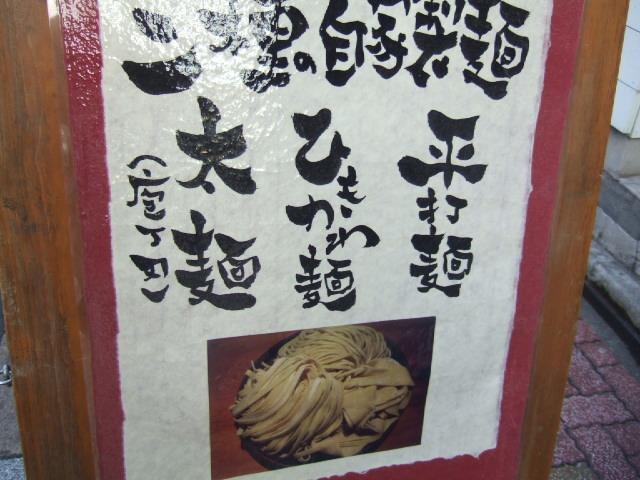 三種の自家製麺
平打麺
ひもかわ麺
太麺
(庖丁切)